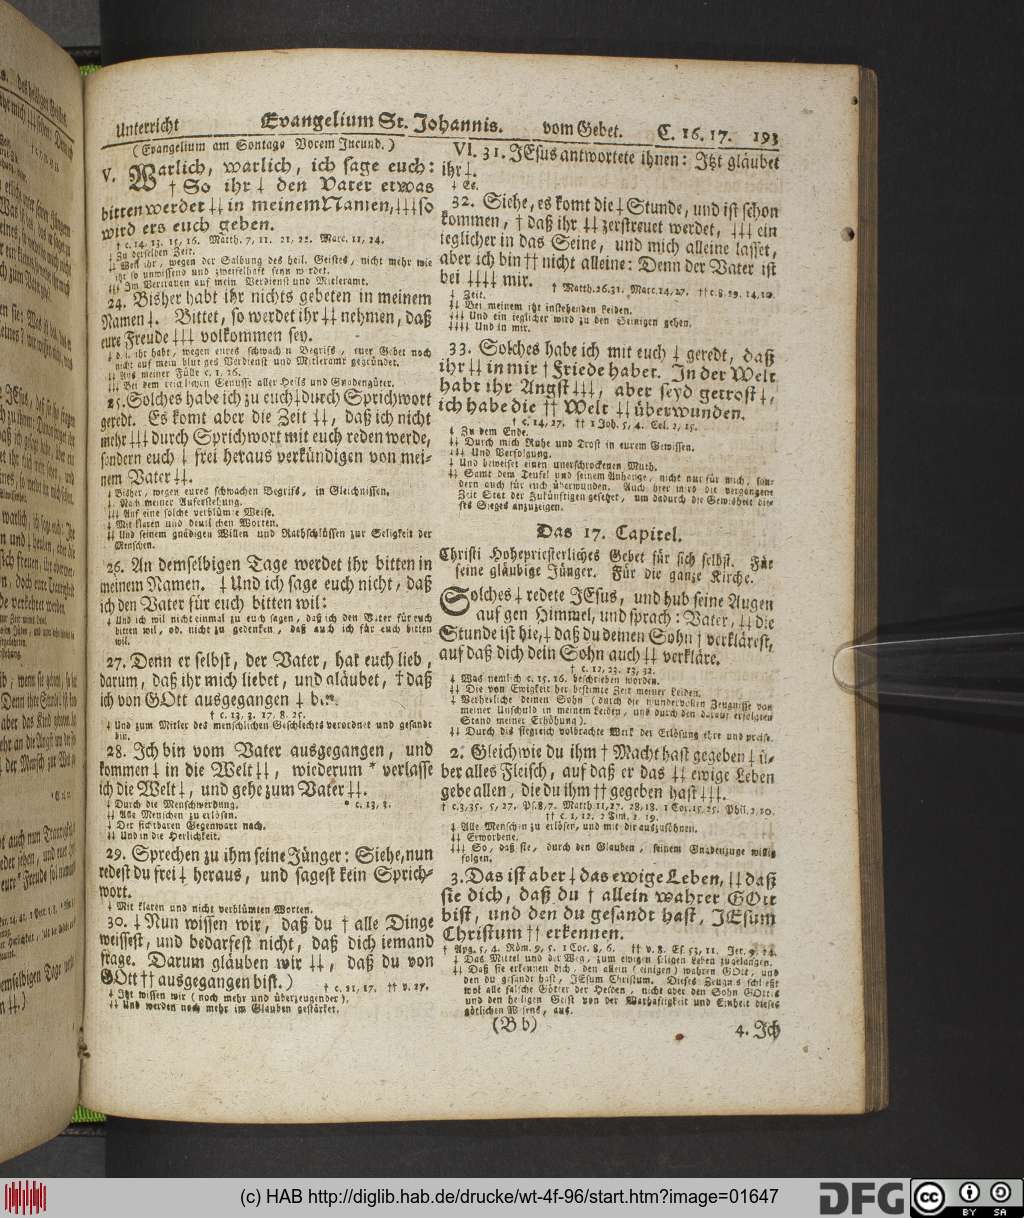 Unterricht Evangelium St. Johannis. vom Gebet. C. 16. 17. 193
(Evangelium am Sontage Vocem Jucund.)
V. Warlich, warlich, ich sage euch:
† So ihr ‡ den Vater etwas
bitten werdet ‡‡ in meinem Namen, ‡‡‡ so
wird ers euch geben.
† c. 14, 13. 15, 16. Matth. 7, 11. 21, 22. Marc. 11, 24.
‡ Zu derselben Zeit.
‡‡ Weil ihr, wegen der Salbung des heil. Geistes, nicht mehr wie
ihr so unwissend und zweifelhaft seyn werdet.
‡‡‡ Im Vertrauen auf mein Verdienst und Mitleramt.
24. Bisher habt ihr nichts gebeten in meinem
Namen ‡. Bittet, so werdet ihr ‡‡ nehmen, daß
eure Freude ‡‡‡ volkommen sey.
‡ d. i. ihr habt, wegen eures schwachen Begrifs, euer Gebet noch
nicht auf mein blutiges Verdienst und Mitleramt gegründet.
‡‡ Aus meiner Fülle c. 1, 16.
‡‡‡ Bei dem reichlichen Genusse aller Heils und Gnadengüter.
25. Solches habe ich zu euch ‡ durch Sprichwort
geredt. Es komt aber die Zeit ‡‡, daß ich nicht
mehr ‡‡‡ durch Sprichwort mit euch reden werde,
sondern euch ‡ frei heraus verkündigen von mei-
nem Vater ‡‡.
‡ Bisher, wegen eures schwachen Begrifs, in Gleichnissen.
‡‡ Nach meiner Auferstehung.
‡‡‡ Auf eine solche verblümte Weise.
‡ Mit klaren und deutlichen Worten.
‡‡ Und seinem gnädigen Willen und Rathschlüssen zur Seligkeit der
Menschen.
26. An demselbigen Tage werdet ihr bitten in
meinem Namen. ‡ Und ich sage euch nicht, daß
ich den Vater für euch bitten wil:
‡ Und ich wil nicht einmal zu euch sagen, daß ich den Vater für euch
bitten wil, od. nicht zu gedenken, daß auch ich für euch bitten
wil.
27. Denn er selbst, der Vater, hat euch lieb,
darum, daß ihr mich liebet, und gläubet, † daß
ich von GOtt ausgegangen ‡
† c. 13, 3. 17, 8. 25.
‡ Und zum Mitler des menschlichen Geschlechts verordnet und gesandt
bin.
28. Ich bin vom Vater ausgegangen, und
kommen ‡ in die Welt ‡‡, wiederum * verlasse
ich die Welt ‡, und gehe zum Vater ‡‡.
‡ Durch die Menschwerdung. * c. 13, 3.
‡‡ Alle Menschen zu erlösen.
‡ Der sichtbaren Gegenwart nach.
‡‡ Und in die Herlichkeit.
29. Sprechen zu ihm seine Jünger: Siehe, nun
redest du frei ‡ heraus, und sagest kein Sprich-
wort.
‡ Mit klaren und nicht verblümten Worten.
30. ‡ Nun wissen wir, daß du † alle Dinge
weissest, und bedarfest nicht, daß dich iemand
frage. Darum gläuben wir ‡‡, daß du von
GOtt †† ausgegangen bist.)
† c. 21, 17. †† v. 27.
‡ Itzt wissen wir (noch mehr und überzeugender),
‡‡ Und werden noch mehr im Glauben gestärket.
VI. 31. JEsus antwortete ihnen: Jtzt gläubet
ihr ‡.
‡ Es.
32. Siehe, es komt die ‡ Stunde, und ist schon
kommen, † daß ihr ‡‡ zerstreuet werdet, ‡‡‡ ein
ieglicher in das Seine, und mich alleine lasset,
aber ich bin †† nicht alleine: Denn der Vater ist
bei ‡‡‡‡ mir.
† Matth. 26, 31. Marc. 14, 27. †† c. 8, 29. 14, 10.
‡ Zeit.
‡‡ Bei meinem itzt instehenden Leiden.
‡‡‡ Und ein ieglicher wird zu den Seinigen gehen.
‡‡‡‡ Und in mir.
33. Solches habe ich mit euch ‡ geredt, daß
ihr ‡‡ in mir † Friede habet. In der Welt
habt ihr Angst ‡‡‡, aber seyd getrost ‡,
ich habe die †† Welt ‡‡ überwunden.
† c. 14, 27. †† 1 Joh. 5, 4. Col. 2, 15.
‡ Zu dem Ende.
‡‡ Durch mich Ruhe und Trost in eurem Gewissen.
‡‡‡ Und Verfolgung.
‡ Und beweiset einen unerschrockenen Muth.
‡‡ Samt dem Teufel und seinem Anhange, nicht nur für mich, son-
dern auch für euch überwunden. Auch hier wird die vergangene
Zeit stat der zukünftigen gesetzet, um dadurch die Gewisheit die-
ses Sieges anzuzeigen.
Das 17. Capitel.
Christi Hohepriesterliches Gebet für sich selbst. Für
seine gläubige Jünger. Für die ganze Kirche.
Solches ‡ redete JEsus, und hub seine Augen
auf gen Himmel, und sprach: Vater, ‡‡ die
Stunde ist hie, ‡ daß du deinen Sohn † verklärest,
auf daß dich dein Sohn auch ‡‡ verkläre.
† c. 12, 23. 13, 32.
‡ Was nemlich c. 15. 16. beschrieben worden.
‡‡ Die von Ewigkeit her bestimte Zeit meiner Leiden.
‡ Verherliche deinen Sohn (durch die wundervollen Zeugnisse von
meiner Unschuld in meinem Leiden, und durch den daraus erfolgten
Stand meiner Erhöhung).
‡‡ Durch das siegreich volbrachte Werk der Erlösung ehre und preise.
2. Gleichwie du ihm † Macht hast gegeben ‡ ü-
ber alles Fleisch, auf daß er das ‡‡ ewige Leben
gebe allen, die du ihm †† gegeben hast ‡‡‡.
† c. 3, 35. 5, 27. Ps. 8, 7. Matth. 11, 27. 28, 18. 1 Cor. 15, 25. Phil. 2, 10.
†† c. 1, 12. 2 Tim. 2, 19.
‡ Alle Menschen zu erlösen, und mit dir auszusöhnen.
‡‡ Erworbene.
‡‡‡ So, daß sie, durch den Glauben, seinem Gnadenzuge willig
folgen.
3. Das ist aber ‡ das ewige Leben, ‡‡ daß
sie dich, daß du † allein wahrer GOtt
bist, und den du gesandt hast, JEsum
Christum †† erkennen.
† Apg. 5, 4. Röm. 9, 5. 1 Cor. 8, 6. †† v. 8. Es. 53, 11. Jer. 9, 24.
‡ Das Mittel und der Weg, zum ewigen seligen Leben zugelangen.
‡‡ Daß sie erkennen dich, den allein (einigen) wahren GOtt, und
den du gesandt hast, JEsum Christum. Dieses Zeugnis schließt
wol alle falsche Götter der Heiden, nicht aber den Sohn GOttes
und den heiligen Geist von der Warhaftigkeit und Einheit dieses
götlichen Wesens, aus.
(B b)
4. Ich
(c) HAB http://diglib.hab.de/drucke/wt-4f-96/start.htm?image=01647
DFG
cc BY SA